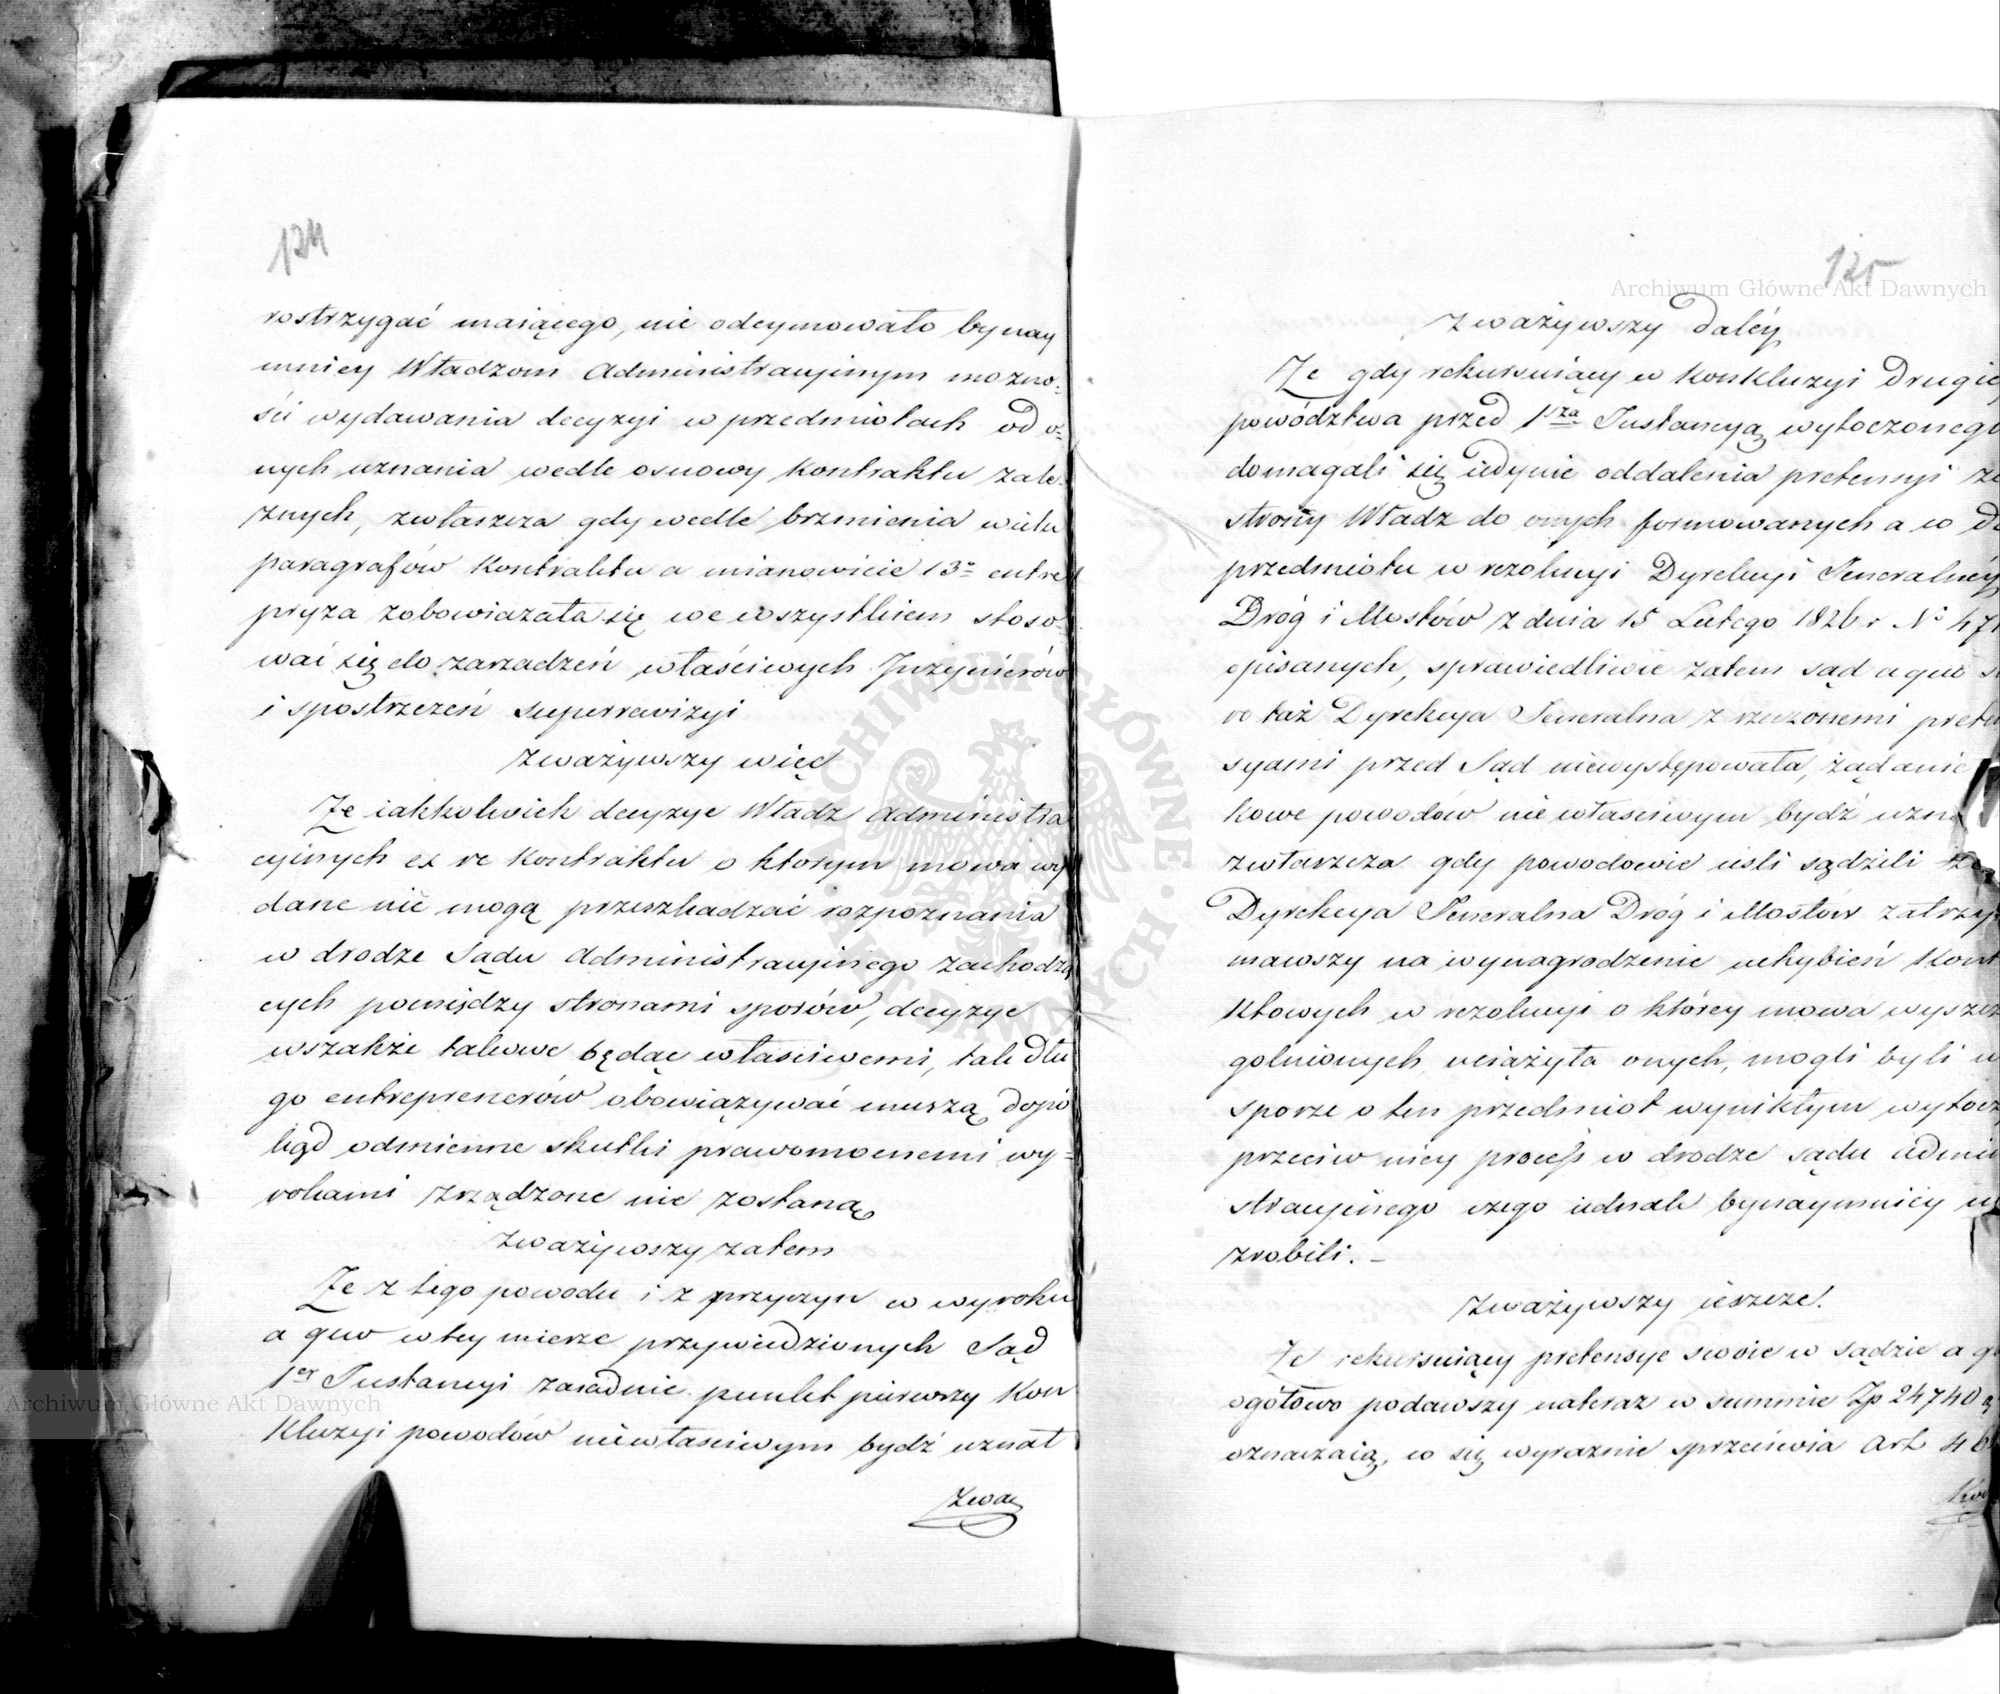 124
rostrzygać maiącego, nie odeymowało bynay
mniey Władzom Administracyinym możno-
ści wydawania decyzyi w przedmiotach od o-
nych uznania wedle osnowy Kontraktu zale-
żnych, zwłaszcza gdy wedle brzmienia wielu
paragrafów Kontraktu a mianowicie 13o entre
pryza zobowiązała się we wszystkiem stoso-
wać się do zarządzeń właściwych Inżynierów
i spostrzeżeń superrewizyi
Zważywszy więc
Że iakkolwiek decyzye Władz Administra
cyinych ex re Kontraktu o którym mowa wy
dane nie mogą przeszkadzać rozpoznania
w drodze Sądu Administracyinego zachodzą
cych pomiędzy stronami sporów, decyzye
wszakże takowe będąc właściwemi, tak dłu
go entreprenerów obowiązywać muszą dopó
kąd odmienne skutki prawomocnemi wy-
rokami zrządzone nie zostaną
Zważywszy zatem
Że z tego powodu i z przyczyn w wyroku
a quo w tey mierze przywiedzionych Sąd
1ey Instancyi zasadnie punkt pierwszy Kon
kluzyi powodów niewłaściwym bydź uznał
Zwa
125
Zważywszy daléy
Że gdy rekursuiący w Konkluzyi drugie
powództwa przed 1szą Instancyą wytoczonego
domagali się iedynie oddalenia pretensyi ze
strony Władz do onych formowanych a w
przedmiotu w rezolucyi Dyrekcyi Generalnéy
Dróg i Mostów z dnia 15 Lutego 1826 r No 471
opisanych, sprawiedliwie zatem sąd a quo s
ro taż Dyrekcya Generalna z rzeczonemi preten
syami przed Sąd niewystępowała, żądanie
kowe powodów niewłaściwym bydź uzna
zwłaszcza gdy powodowie ieśli sądzili że
Dyrekcya Generalna Dróg i Mostów zatrzy
mawszy na wynagrodzenie uchybień Kont
ktowych w rezolucyi o którey mowa wyszcz
gólnionych uciążyła onych, mogli byli w
sporze o ten przedmiot wynikłym wytocz
przeciw niey process w drodze sądu admin
stracyinego czego iednak bynaymniey nie
zrobili. _
Zważywszy ieszcze!
Że rekursuiący pretensye swoie w sądzie a qu
ogółowo podawszy nateraz w summie Zp 24740
oznaczaią, co się wyraźnie sprzeciwia Art 46
Ko
Archiwum Główne Akt Dawnych
Archiwum Główne Akt Dawnych
ARCHIWUM GŁÓWNE · AKT DAWNYCH ·